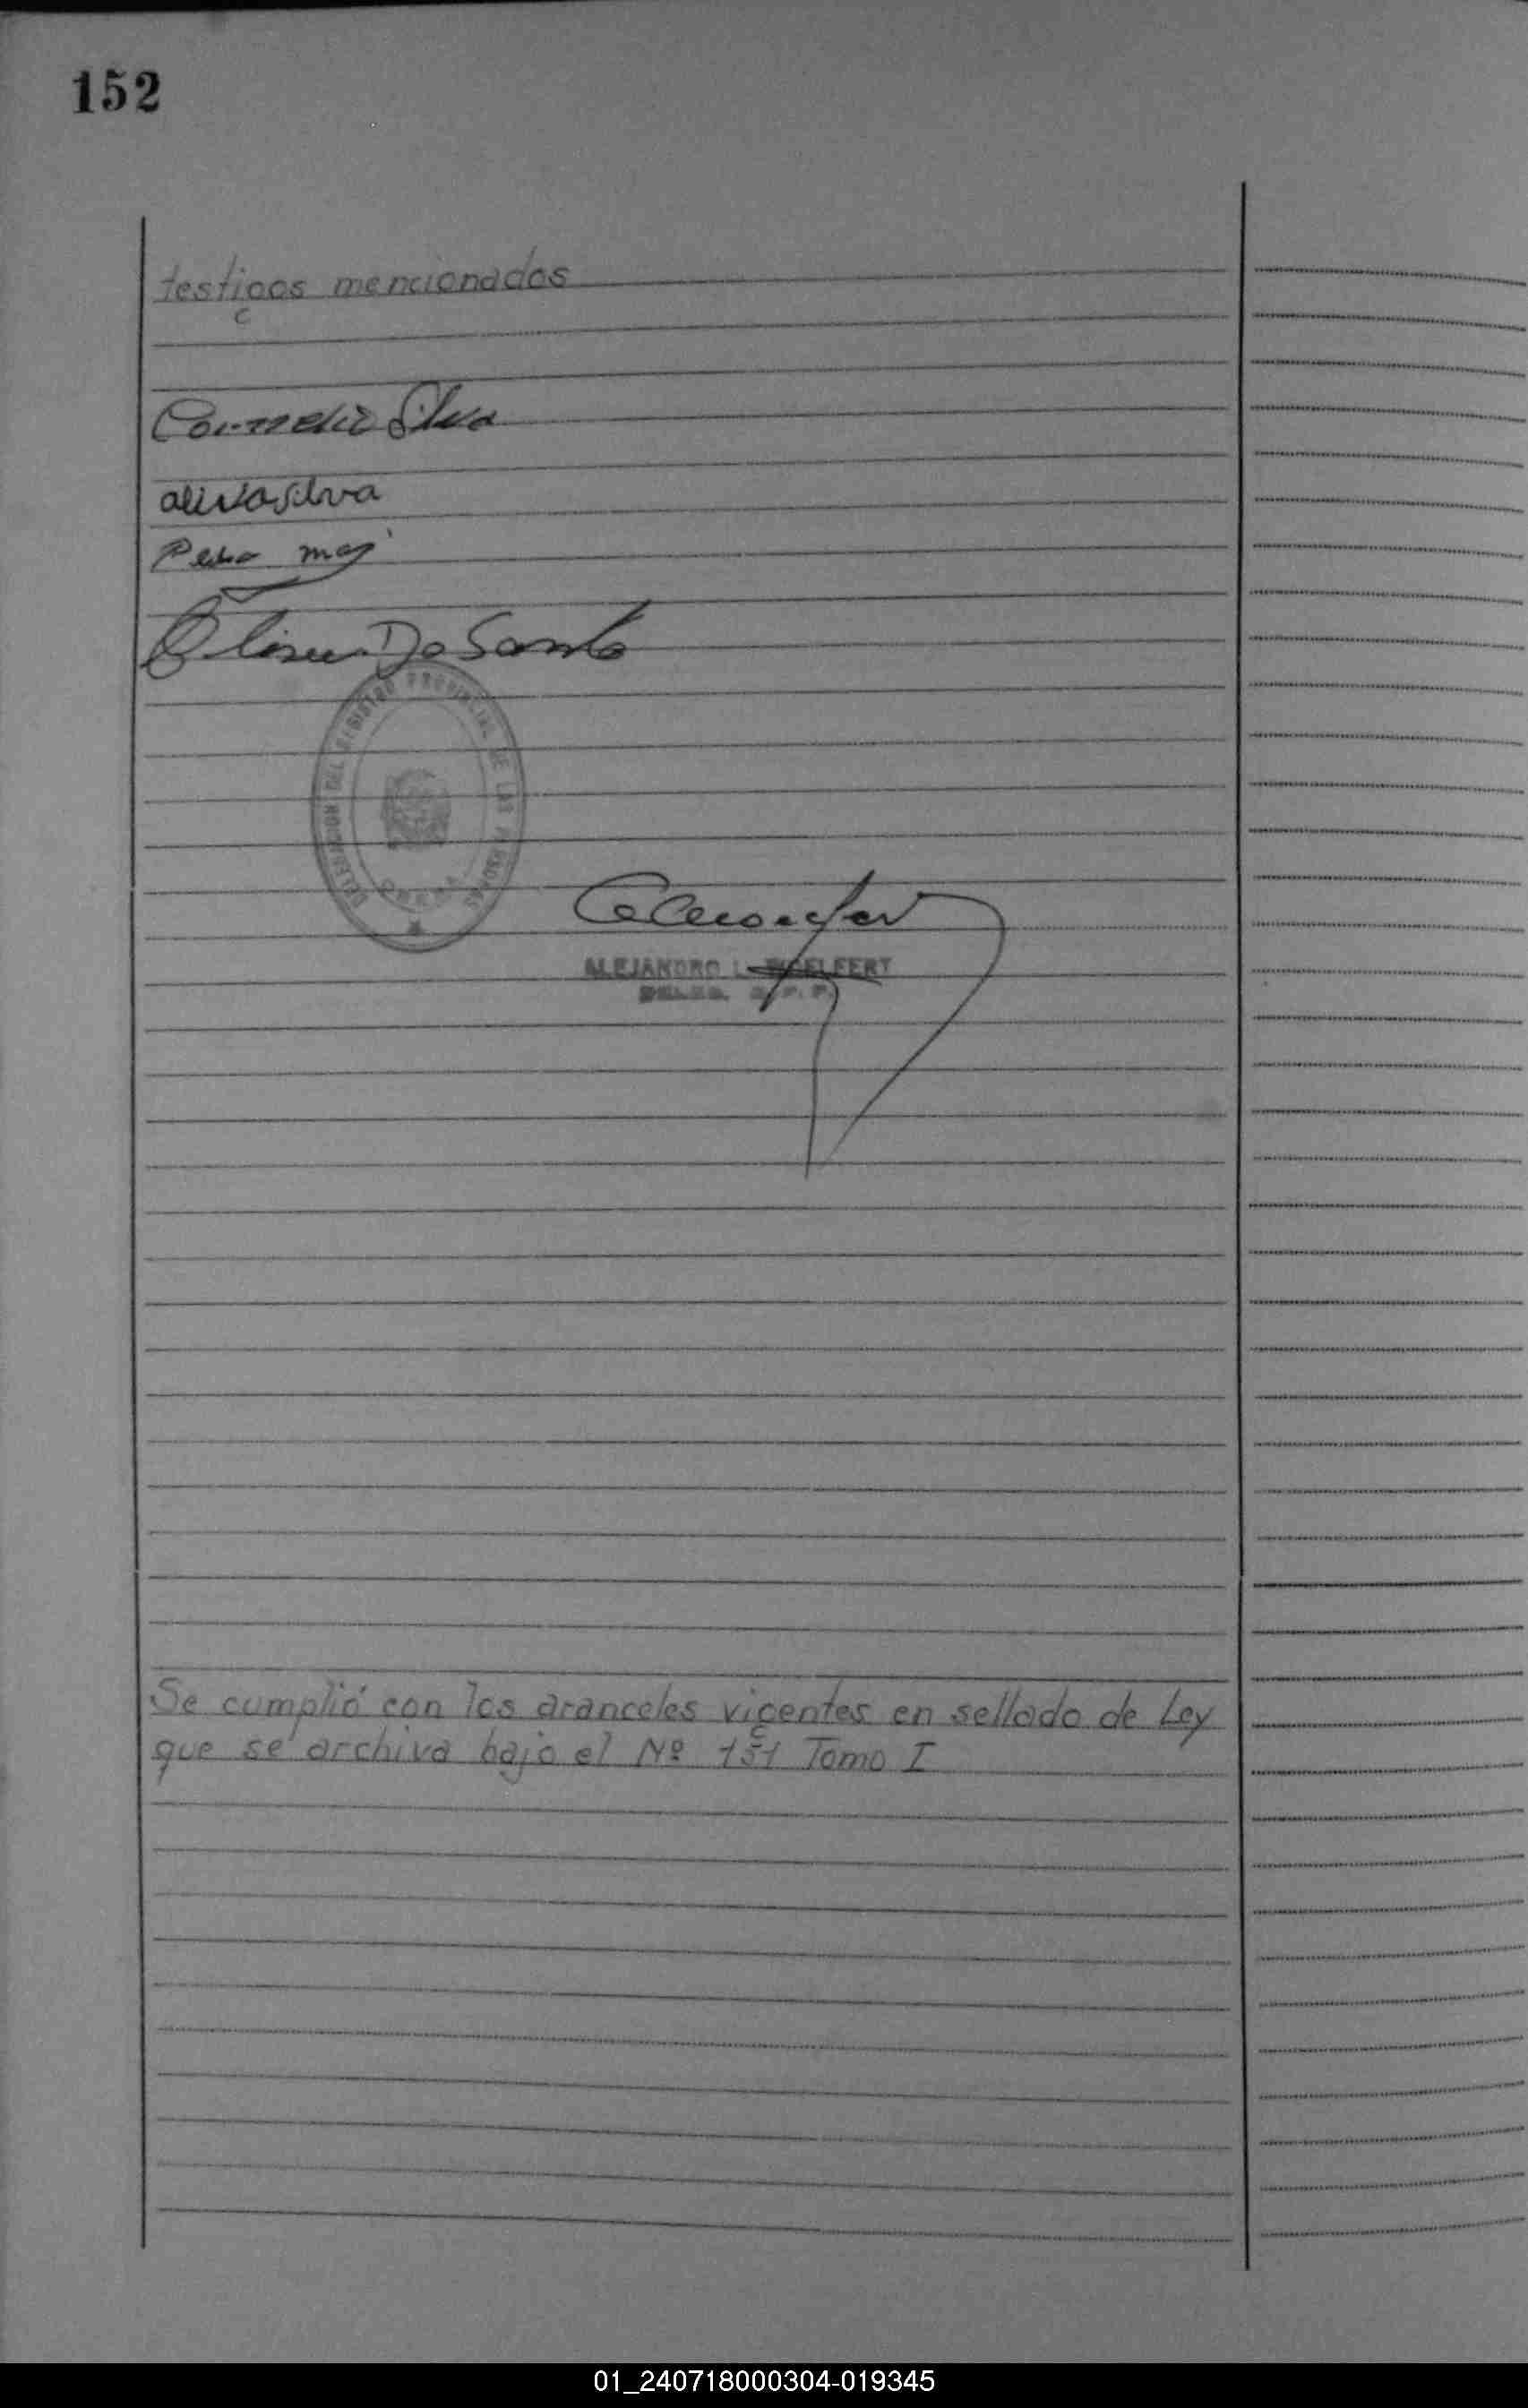 152
testigos mencionados
Silva
silva
Pedro
Da Santo
DELEGACION DEL REGISTRO PROVINCIAL DE LAS PERSONAS
ALEJANDRO L.
Se cumplió con los aranceles vigentes en sellado de Ley
que se archiva bajo el Nº 151 Tomo I
01_240718000304-019345